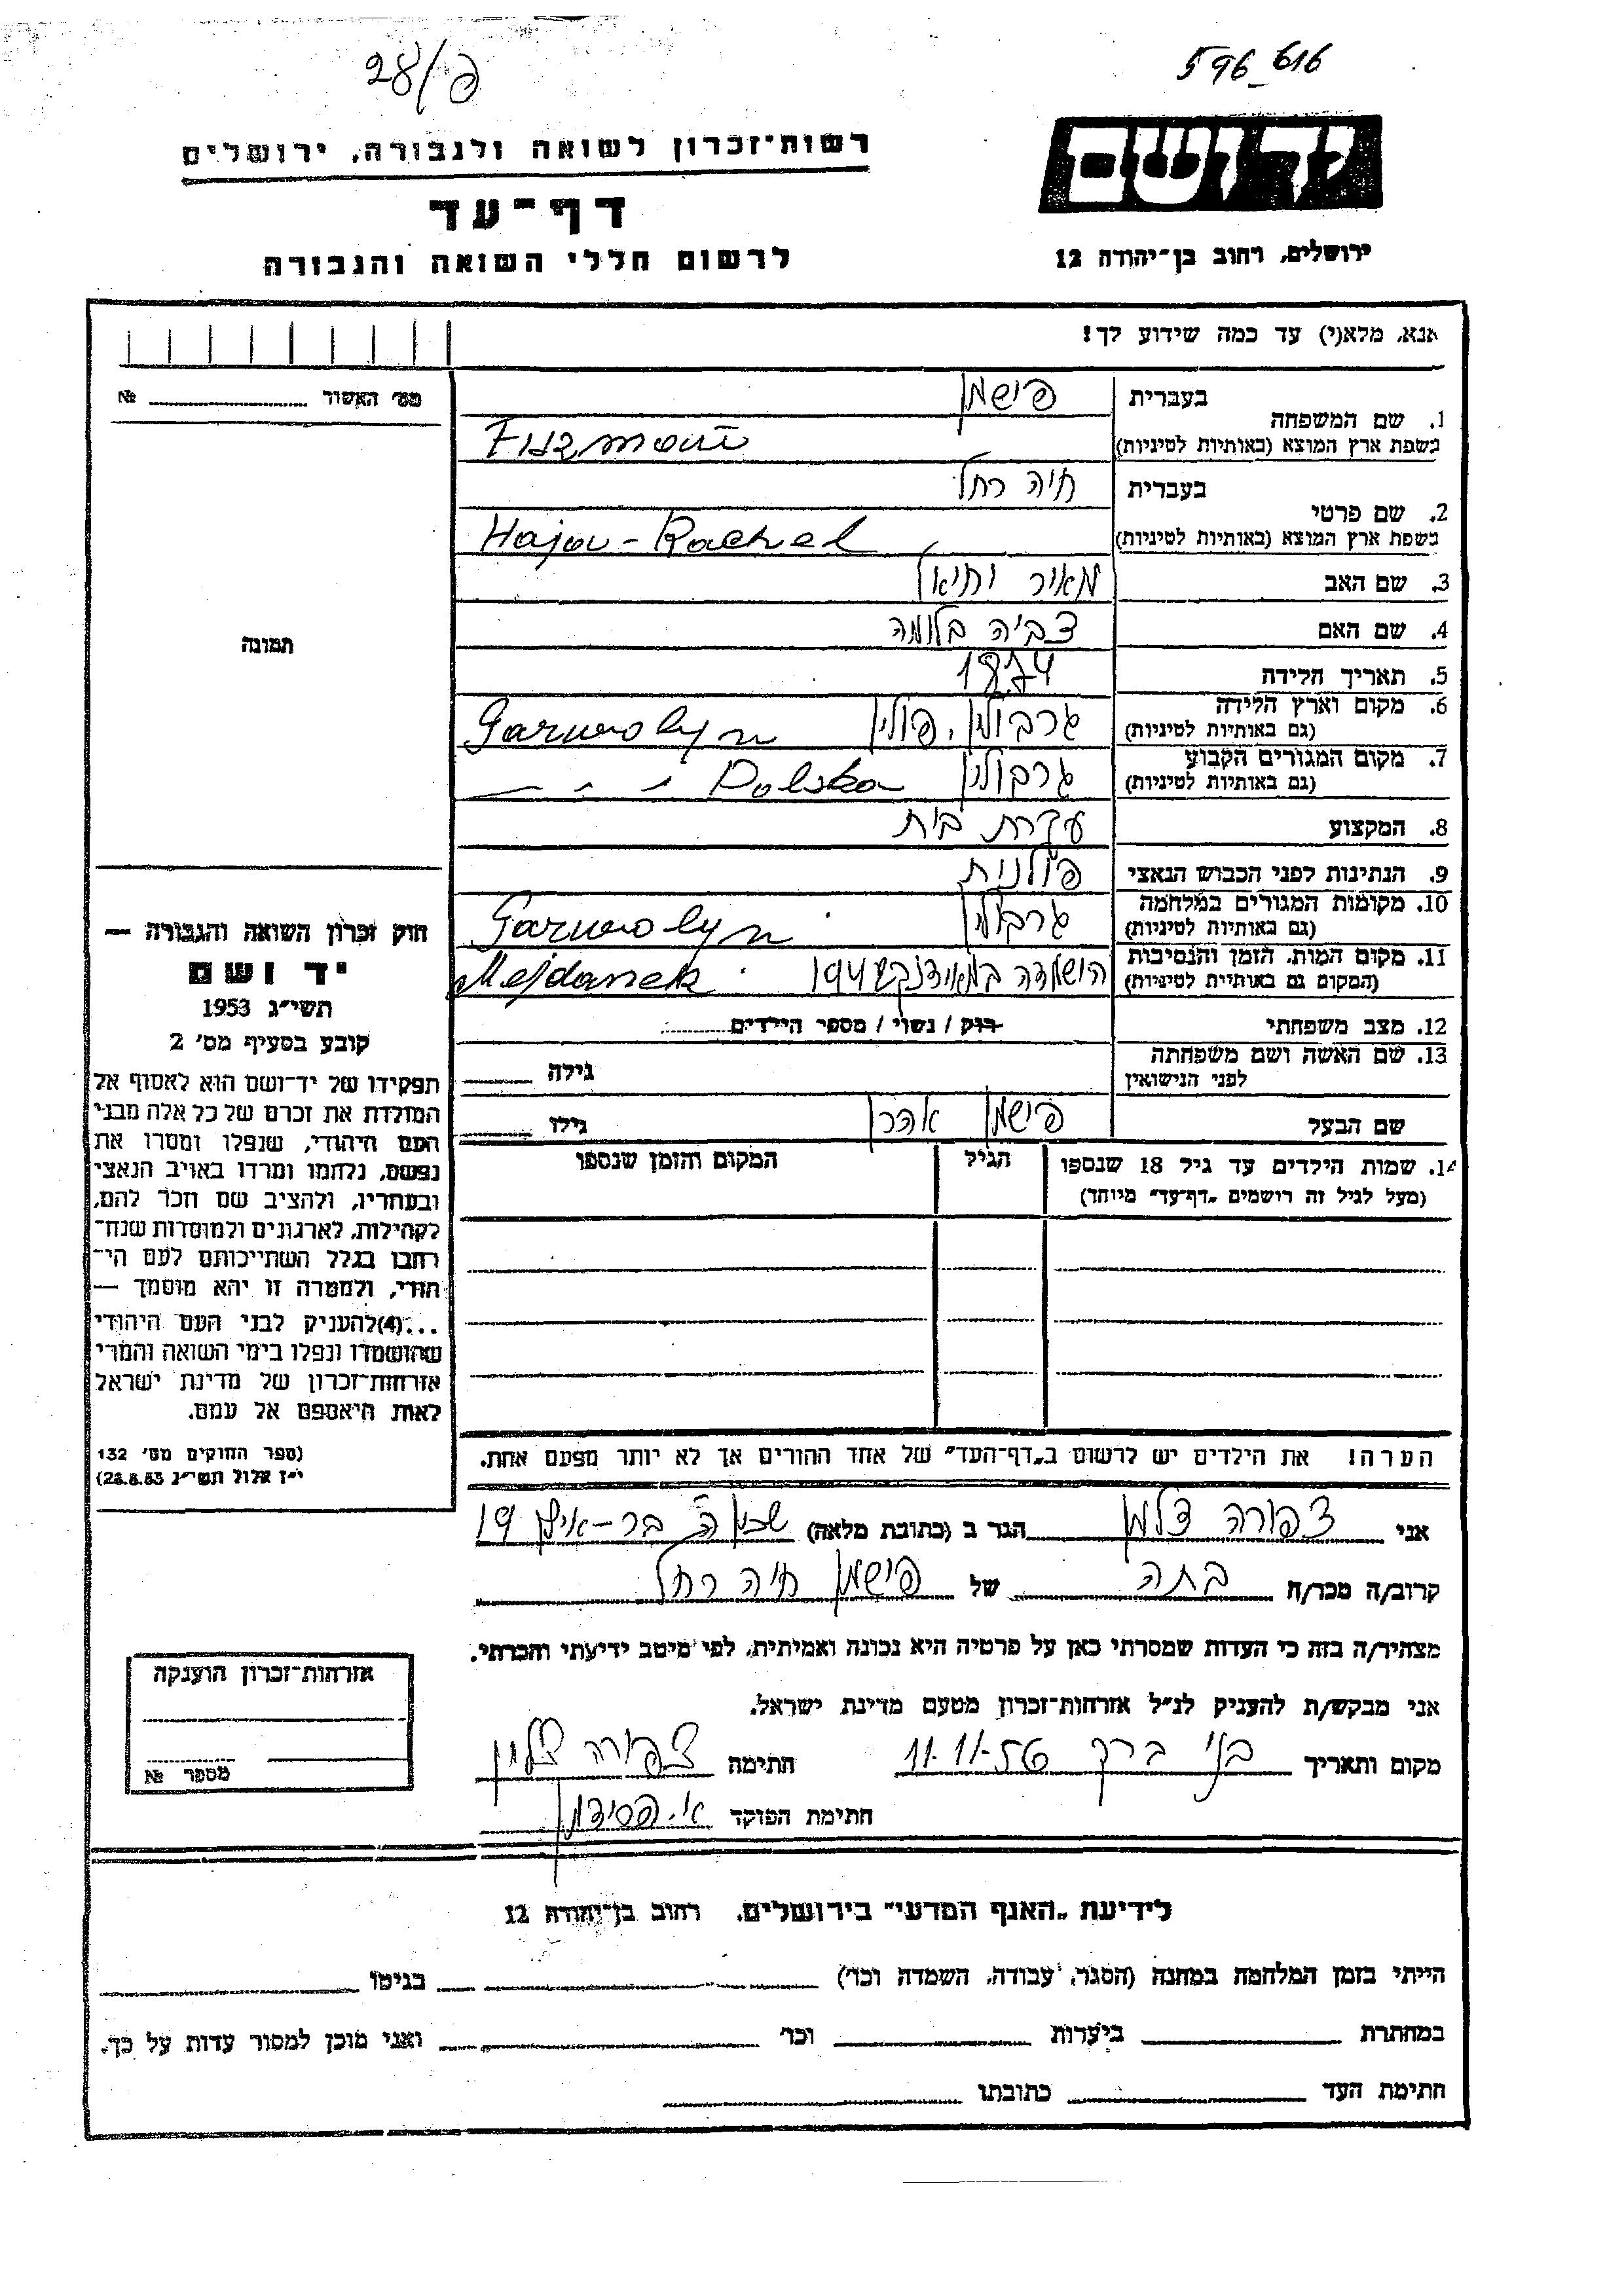 28/פ
596-616
יד ושם
רשות־זכרון לשואה ולגבורה, ירושלים
דף־עד
לרשום חללי השואה והגבורה
ירושלים, רחוב בן־יהודה 12
אנא, מלא(י) עד כמה שידוע לך!
מס׳ האשור № 
1. שם המשפחה
בעברית פישמן
בשפת ארץ המוצא (באותיות לטיניות) Fiszman
2. שם פרטי
בעברית חיה רחל
בשפת ארץ המוצא (באותיות לטיניות) Haja - Rachel
3. שם האב מאיר יחיאל
4. שם האם צביה בלומה
5. תאריך הלידה 1874
6. מקום וארץ הלידה גרבולין, פולין Garwolyn
(גם באותיות לטיניות)
7. מקום המגורים הקבוע גרבולין Polska
(גם באותיות לטיניות)
8. המקצוע עקרת בית
9. הנתינות לפני הכבוש הנאצי פולנית
10. מקומות המגורים במלחמה גרבולין Garwolyn
(גם באותיות לטיניות)
11. מקום המות, הזמן והנסיבות הושמדה במאידנק Mejdanek
(המקום גם באותיות לטיניות)
12. מצב משפחתי רוק / נשוי / מספר הילדים
13. שם האשה ושם משפחתה
לפני הנישואין
גילה
שם הבעל פישמן אהרן גילו
14. שמות הילדים עד גיל 18 שנספו
(מעל לגיל זה רושמים „דף־עד” מיוחד)
הגיל
המקום והזמן שנספו
הערה! את הילדים יש לרשום ב„דף־העד” של אחד ההורים אך לא יותר מפעם אחת.
תמונה
חוק זכרון השואה והגבורה —
יד ושם
תשי״ג 1953
קובע בסעיף מס׳ 2
תפקידו של יד־ושם הוא לאסוף אל
המולדת את זכרם של כל אלה מבני
העם היהודי, שנפלו ומסרו את
נפשם, נלחמו ומרדו באויב הנאצי
ובעוזריו, ולהציב שם וזכר להם,
לקהילות, לארגונים ולמוסדות שנח־
רבו בגלל השתייכותם לעם הי־
הודי, ולמטרה זו יהא מוסמך —
...(4) להעניק לבני העם היהודי
שהושמדו ונפלו בימי השואה והמרי
אזרחות־זכרון של מדינת ישראל
לאות היאספם אל עמם.
(ספר החוקים מס׳ 132
י״ז אלול תשי״ג 28.8.53)
אני צפורה צלמן הגר ב (כתובת מלאה) שכון ה׳ בר-אילן 19
קרוב/ה מכר/ה בתה של פישמן חיה רחל
מצהיר/ה בזה כי העדות שמסרתי כאן על פרטיה היא נכונה ואמיתית, לפי מיטב ידיעתי והכרתי.
אני מבקש/ת להעניק לנ״ל אזרחות־זכרון מטעם מדינת ישראל.
מקום ותאריך בני ברק 11.11.56 חתימה צפורה צלמן
חתימת הפוקד
אזרחות־זכרון הוענקה
מספר №
לידיעת „האגף המדעי” בירושלים, רחוב בן־יהודה 12
הייתי בזמן המלחמה במחנה (הסגר, עבודה, השמדה וכו׳) בגיטו
במחתרת ביערות וכו׳ ואני מוכן למסור עדות על כך.
חתימת העד כתובתו